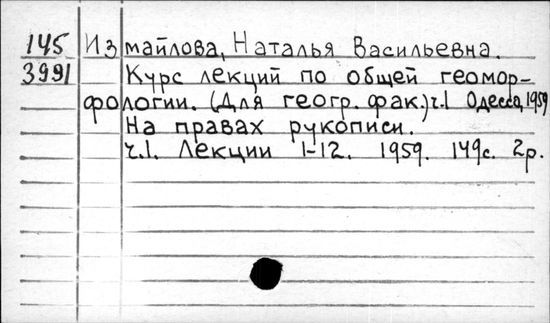 145 Измайлова, Наталья Васильевна.
3991 Курс лекций по общей геомор-
фологии. (Для геогр. фак.) ч.1 Одесса, 1959
На правах рукописи.
ч.1. Лекции 1-12. 1959. 149с. 2р.